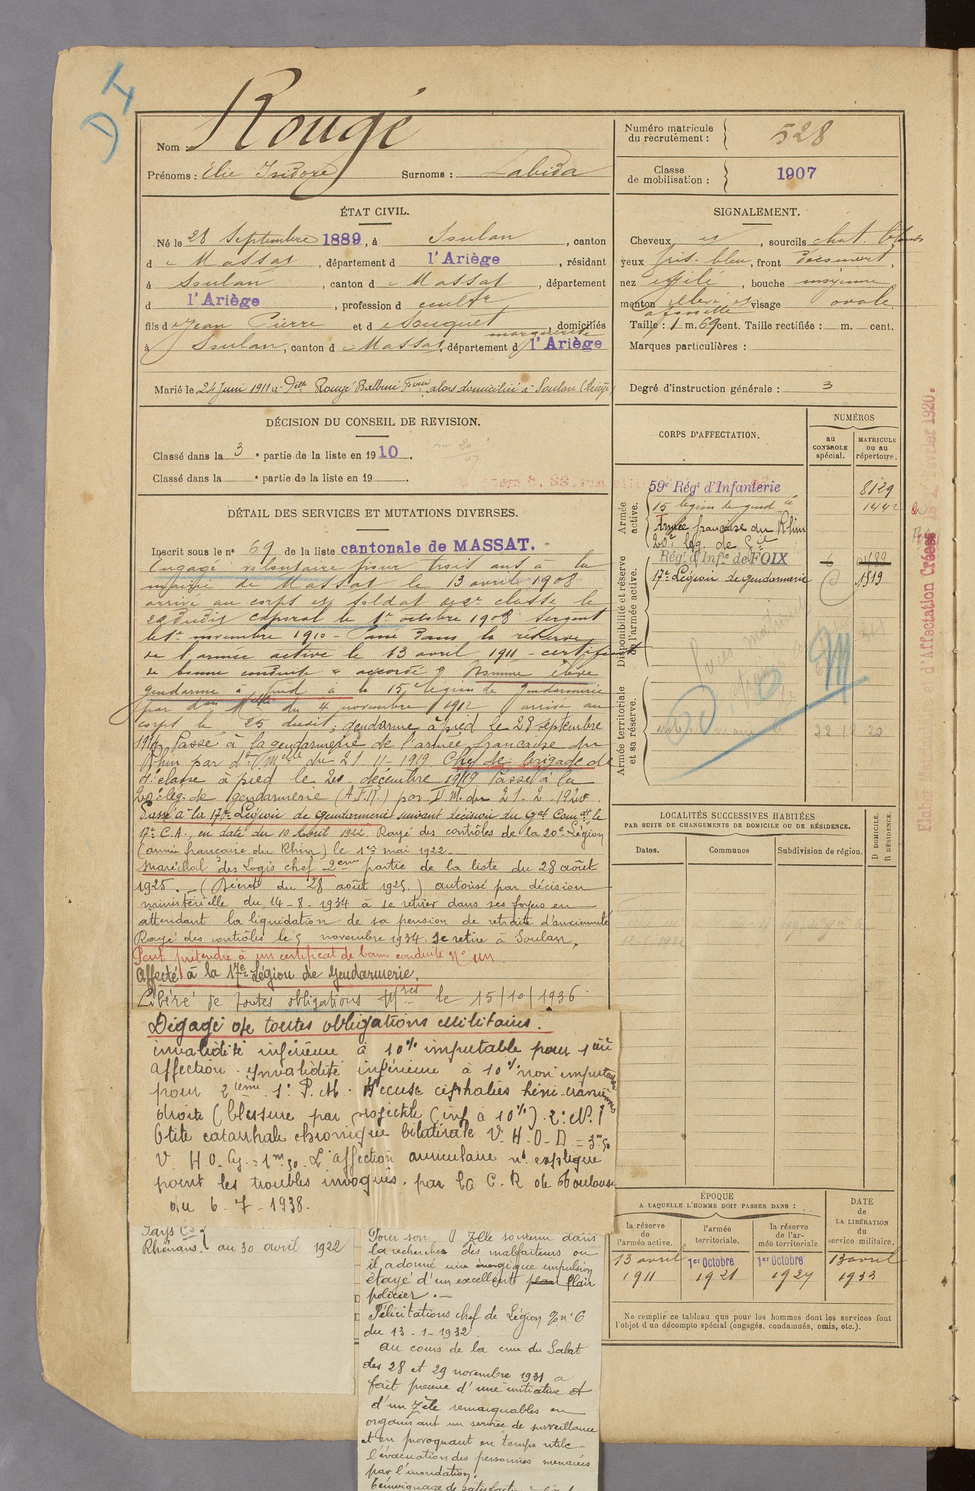 D 4
Nom : Rougé
Prénoms : Elie Isidore Surnoms : Labida
Numéro matricule du recrutement : 528
Classe de mobilisation : 1907
ÉTAT CIVIL.
Né le 28 Septembre 1889, à Soulan, canton
d Massat, département d l'Ariège, résidant
à Soulan, canton d Massat, département
d l'Ariège, profession d cultr
fils d Jean Pierre et d Souquet marguerite domiciliés
à Soulan, canton d Massat, département d l'Ariège
Marié le 24 Juin 1911 à Dlle Rougé alors domiciliée à Soulan (Ariège)
SIGNALEMENT.
Cheveux et, sourcils chat.
yeux gris. bleu, front Découvert,
nez effilé, bouche moyenne
menton visage ovale
Taille : 1 m. 69 cent. Taille rectifiée : m. cent.
Marques particulières :
Degré d'instruction générale : 3
DÉCISION DU CONSEIL DE REVISION.
Classé dans la 3e partie de la liste en 1910
Classé dans la e partie de la liste en 19
DÉTAIL DES SERVICES ET MUTATIONS DIVERSES.
Inscrit sous le no 69 de la liste cantonale de MASSAT.
Engagé volontaire pour trois ans à la
mairie de Massat le 13 avril 1908
arrivé au corps et soldat de 2e classe le
dudit caporal le 1er octobre 1908 sergent
le 1er novembre 1910 - Passé dans la réserve
de l'armée active le 13 avril 1911 - certificat
de bonne conduite accordé Nommé élève
gendarme à pied à la 15e légion de gendarmerie
par du 4 novembre 1912 arrivé au
corps le 25 dudit, gendarme à pied le 28 septembre
Passé à la gendarmerie de l'armée française du
Rhin par d. Melle du 21-11-1919. Chef de brigade de
4e classe à pied le 20 décembre 1919 Passé à la
20e Lég. de gendarmerie (A.F.R) par D.M. du 21.2.1920.
Passé à la 17e Légion de gendarmerie suivant décision du Gal Comdt le
17e C.A., en date du 10 Avril 1922. Rayé des contrôles de la 20e Légion
(armée française du Rhin) le 1er mai 1922.
Maréchal des Logis chef 2eme partie de la liste du 28 août
1925. - (Décret du 28 août 1925.) autorisé par décision
ministérielle du 14-8-1934 à se retirer dans ses foyers en
attendant la liquidation de sa pension de retraite d'ancienneté
Rayé des contrôles le 5 novembre 1934. Se retire à Soulan.
Peut prétendre à un certificat de bonne conduite No un.
Affecté à la 17e Légion de Gendarmerie.
Libéré de toutes obligations Mres le 15/10/1936
Dégagé de toutes obligations militaires.
invalidité inférieure à 10% imputable pour 1ère
affection. Invalidité inférieure à 10% non imputable
pour 2ième 1° P.M. Accuse céphalées hémi-crâniennes
droite (blessure par projectile (inf à 10%). 2° N.I
Otite catarrhale chronique bilatérale V.H.O.D. = 3m50
V.H.O.G. = 1m50. L'affection auriculaire n'explique
point les troubles invoqués. par la C.R de Toulouse
du 6-7-1938.
Pays
Rhénans. au 30 avril 1922
Pour son zèle soutenu dans
la recherche des malfaiteurs où
il a donné une énergique impulsion
étayé d'un excellent flair
policier. -
Félicitations chef de Légion no 6
du 13-1-1932
au cours de la crue du Salat
des 28 et 29 novembre 1931 a
fait preuve d'une initiative et
d'un zèle remarquables en
organisant un service de surveillance
et en provoquant en temps utile
l'évacuation des personnes menacées
par l'inondation.
Témoignage de satisfaction
CORPS D'AFFECTATION.
NUMÉROS
AU CONTROLE spécial.
MATRICULE OU AU répertoire.
Armée active.
59e Régt d'Infanterie 8129
15 légion de gend à 1442
Armée française du Rhin
20e lég. de Gie
Disponibilité et réserve de l'armée active.
Régt d'Infie de FOIX
17e Légion de gendarmerie 1519
Armée territoriale et sa réserve.
Florac et d'Affectation Créées février 1920.
LOCALITÉS SUCCESSIVES HABITÉES
PAR SUITE DE CHANGEMENTS DE DOMICILE OU DE RÉSIDENCE.
Dates.
Communes
Subdivision de région.
D DOMICILE.
R RÉSIDENCE.
ÉPOQUE
A LAQUELLE L'HOMME DOIT PASSER DANS :
DATE DE LA LIBÉRATION DU service militaire.
la réserve de l'armée active.
l'armée territoriale.
la réserve de l'armée territoriale.
13 avril 1911
1er Octobre 1921
1er Octobre 1927
13 avril 1933
Ne remplir ce tableau que pour les hommes dont les services font
l'objet d'un décompte spécial (engagés, condamnés, omis, etc.).